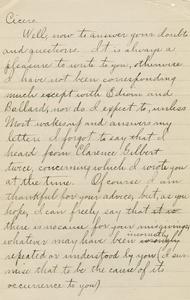 Cicero.
Well, now to answer your doubts
and questions. It is always a
pleasure to write to you, otherwise
I have not been corresponding
much except with Edison and
Ballard, nor do I expect to, unless
Most wakes up and answers my
letter. I forgot to say that I
heard from Clarence Gilbert
twice concerning which I wrote you
at the time. Of course I am
thankful for your advice, but, as you
hope, I can freely say that it is
there is no cause for your misgivings,
whatever may have been wrongly incorrectly
repeated or understood by you (I sur-
mise that to be the cause of its
occurrence to you)